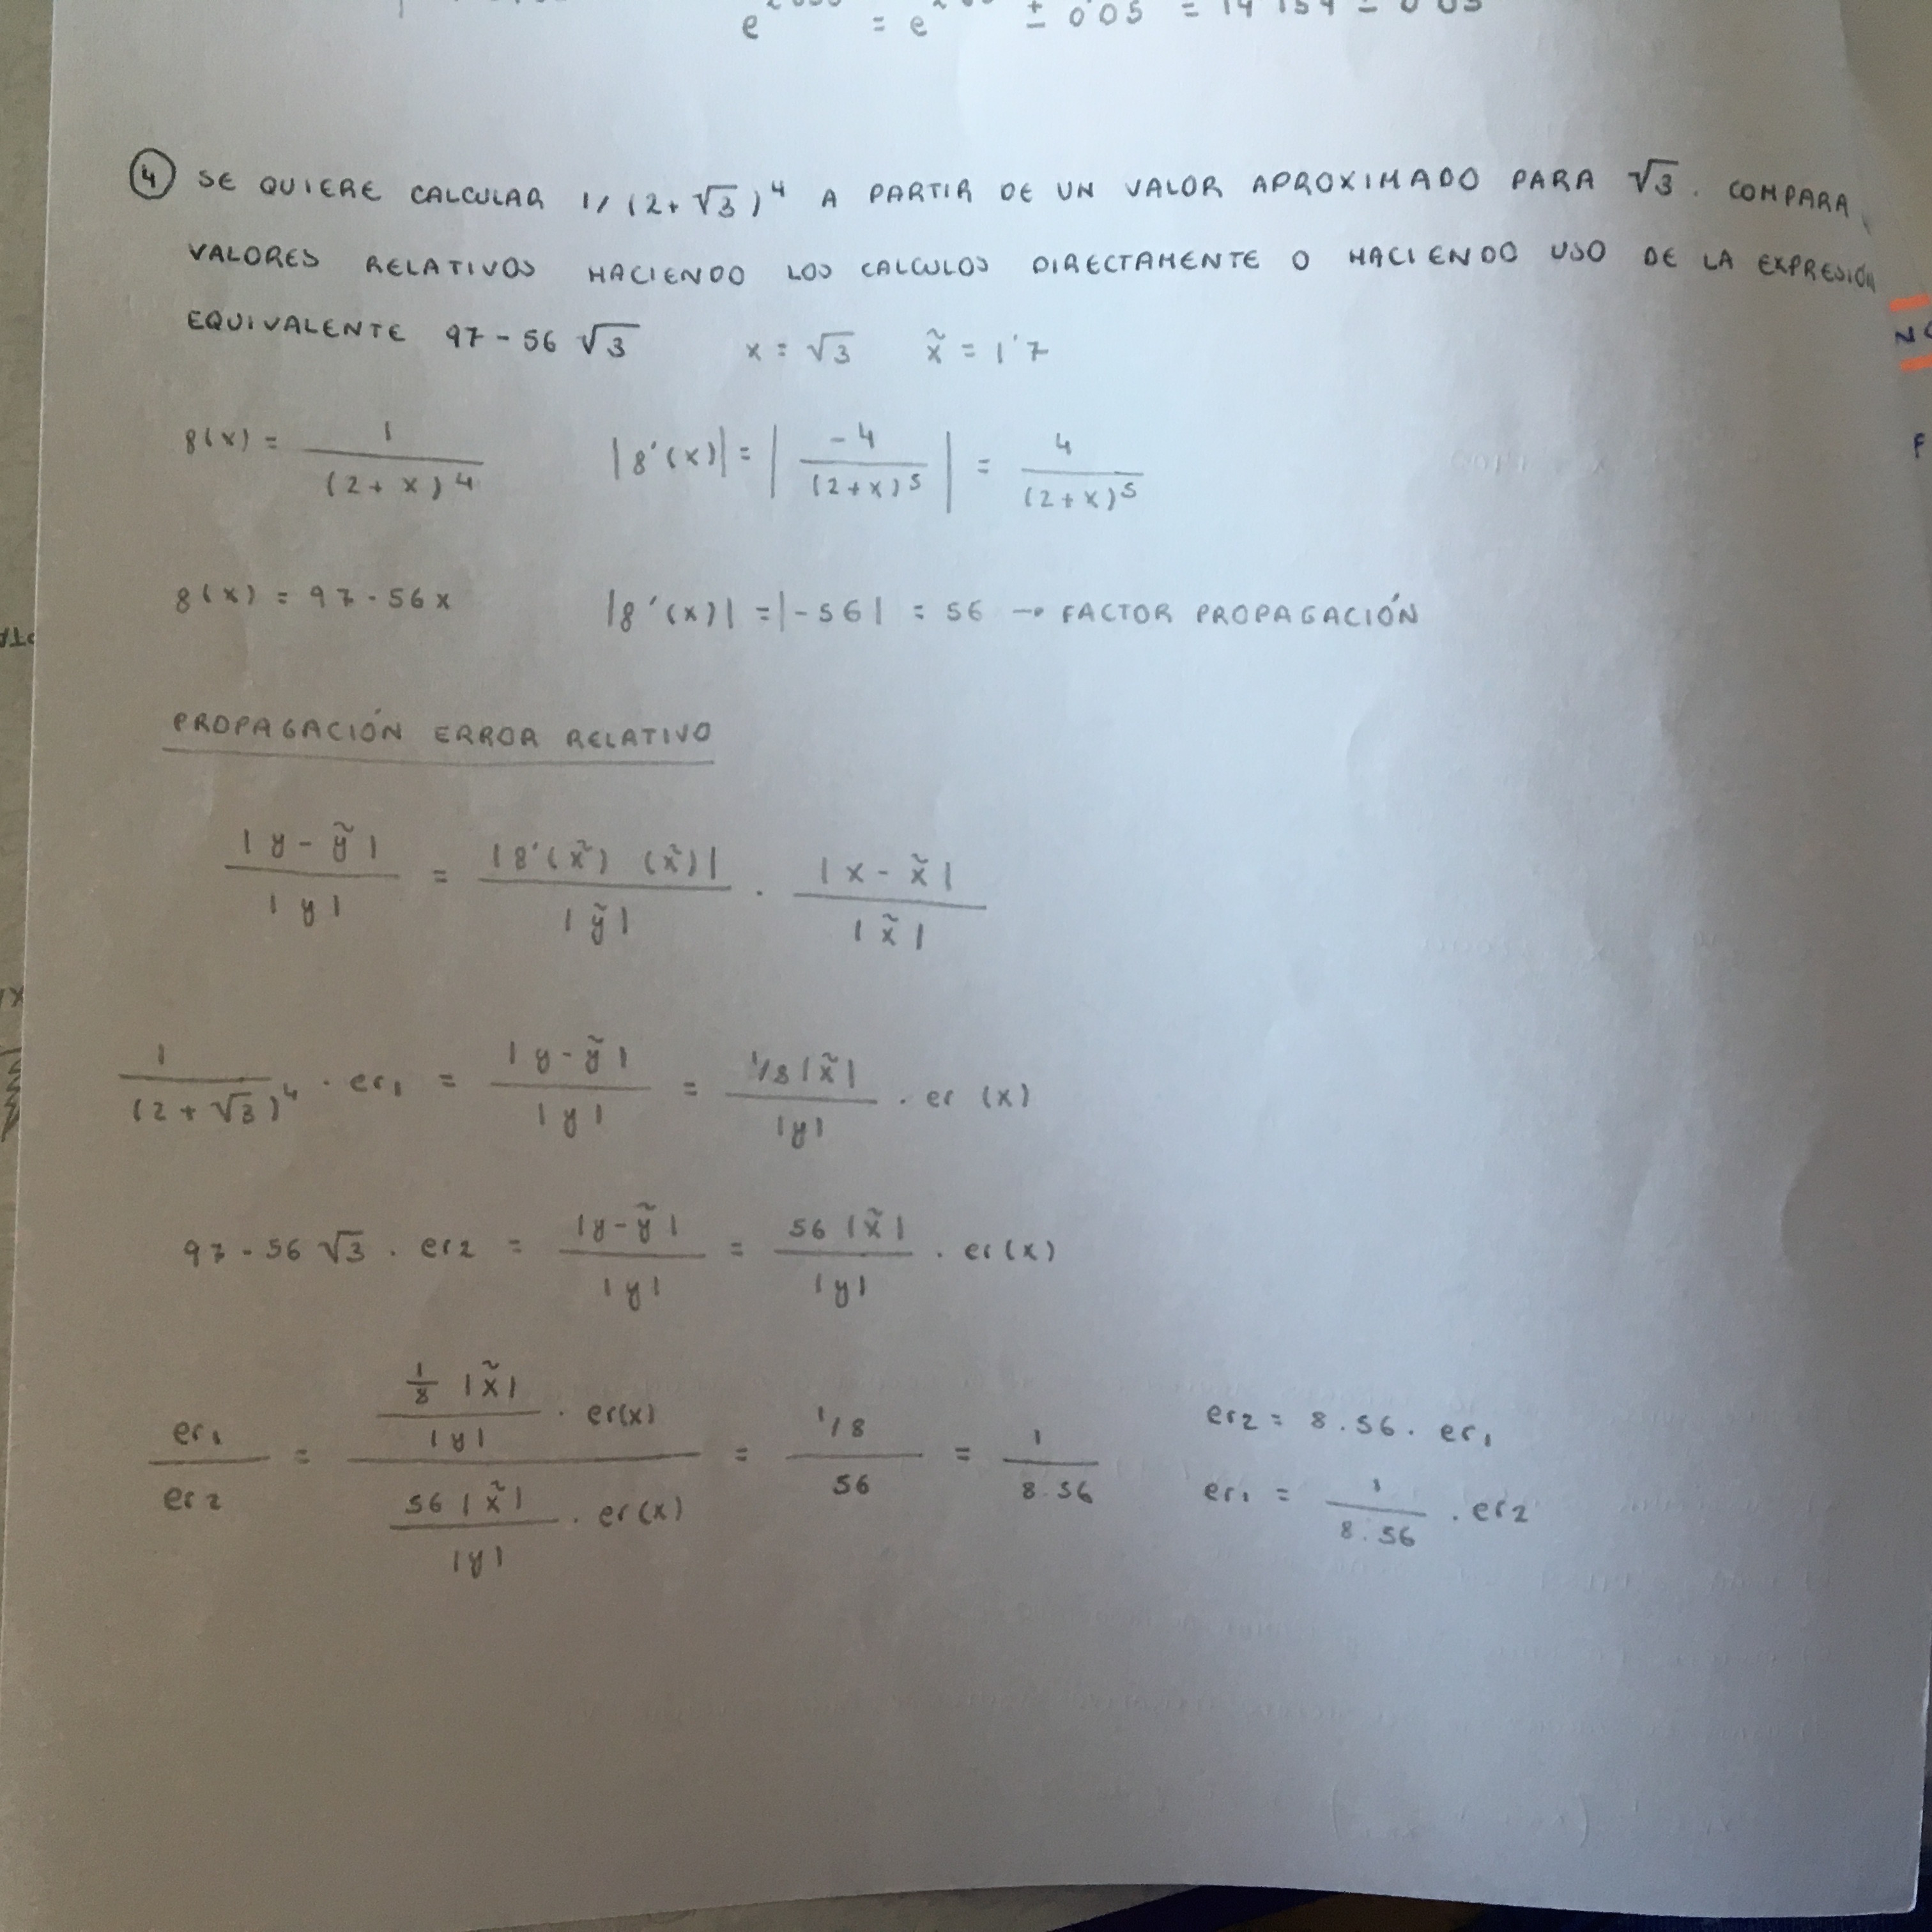 = e ± 0'05 =
④ SE QUIERE CALCULAR 1/(2+√3)⁴ A PARTIR DE UN VALOR APROXIMADO PARA √3. COMPARA
VALORES RELATIVOS HACIENDO LOS CALCULOS DIRECTAMENTE O HACIENDO USO DE LA EXPRESIÓN
EQUIVALENTE 97 - 56 √3 x = √3 x̃ = 1'7
g(x) = 1/(2+x)⁴ |g'(x)| = |-4/(2+x)⁵| = 4/(2+x)⁵
g(x) = 97 - 56x |g'(x)| = |-56| = 56 → FACTOR PROPAGACIÓN
PROPAGACIÓN ERROR RELATIVO
|y - ỹ|/|y| = |g'(x̃) (x̃)|/|ỹ| · |x - x̃|/|x̃|
1/(2+√3)⁴ · er₁ = |y - ỹ|/|y| = 1/8 |x̃|/|y| · er (x)
97 - 56 √3 · er2 = |y - ỹ|/|y| = 56 |x̃|/|y| · er(x)
er₁/er2 = (1/8 |x̃|/|y| · er(x))/(56 |x̃|/|y| · er(x)) = (1/8)/56 = 1/8·56
er2 = 8·56· er₁
er₁ = 1/8·56 · er2